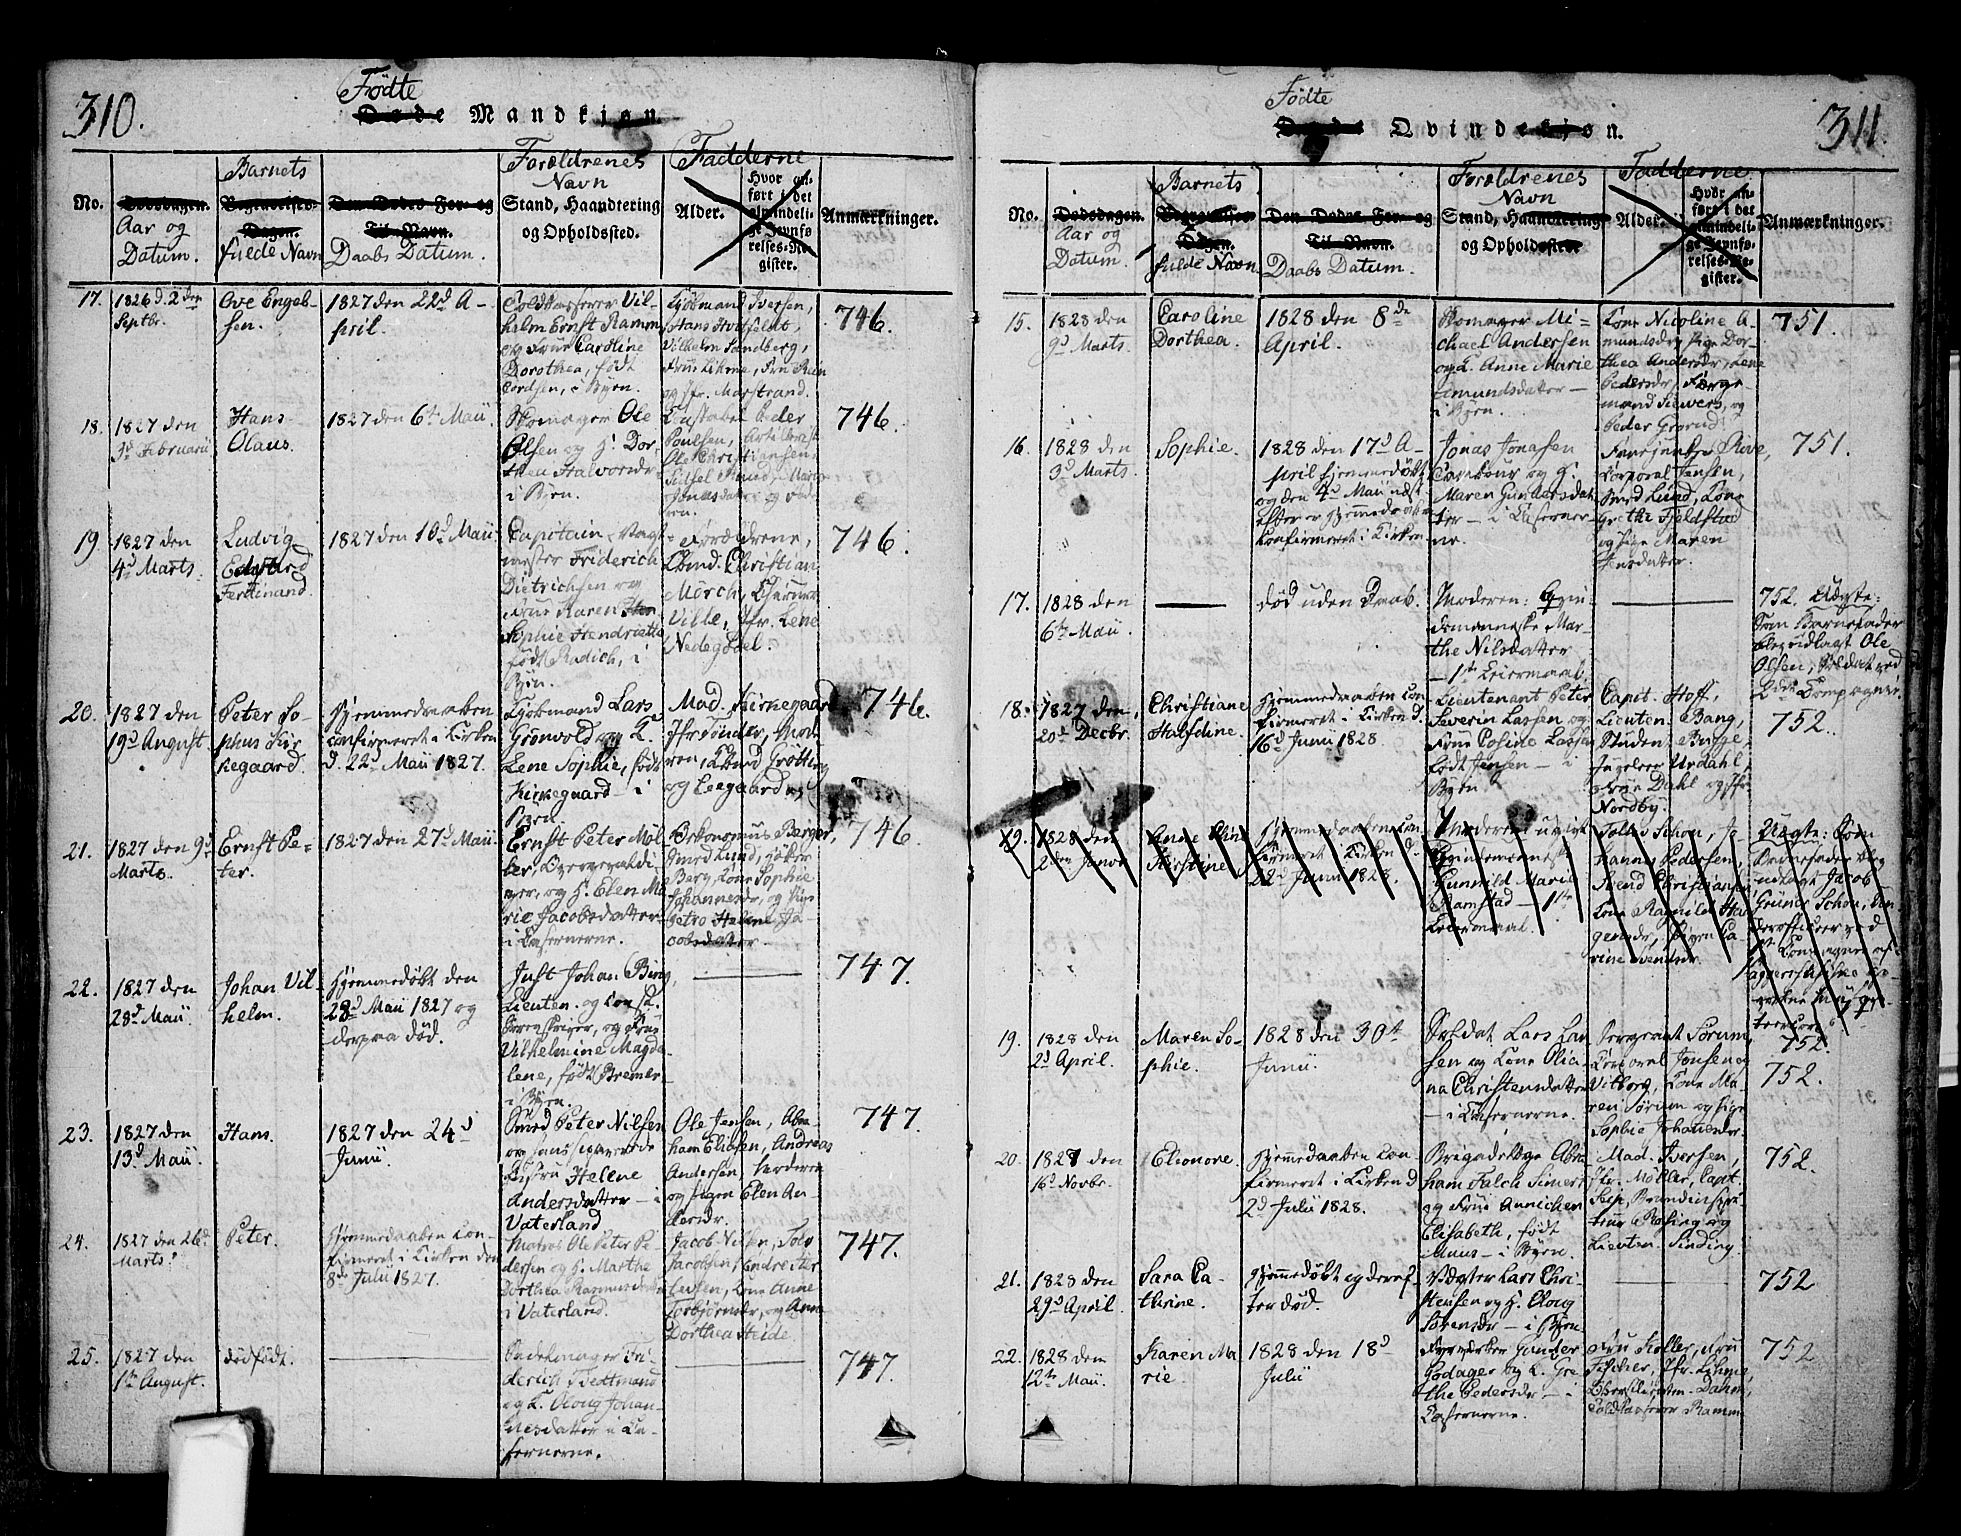 310.
Födte
Døde Mandkjøn.
No.
Dødsdagen.
Aar og
Datum.
Barnets
Begravelses-
Dagen.
fulde Navn
Den Dødes For- og
Til-Navn.
Daabs Datum.
Forældrenes
Navn
Stand, Haandtering
og Opholdssted.
Fadderne
Alder.
Hvor an-
ført i det
almindeli-
ge Jevnfø-
relses-Re-
gister.
Anmærkninger.
17.
1826 d. 2den
Septbr.
Ove Engel-
sen.
1827 den 22d A-
pril.
Toldkasserer Vil-
helm Ernst Ramm
og Frue Caroline
Dorothea, født
Cordsen, i Byen.
Kjøbmand Iversen,
Hans Hvitfeldt,
Vilhelm Sandberg,
og Jfr. Marstrand.
746.
18.
1827 den
3d Februarii
Hans
Olaus.
1827 den 6te Maii.
Skomager Ole
Olsen og H. Dor-
thea Halvorsdr.
i Byen.
Constabel Peder
Poulsen, Artillerist
Ole Christiansen,
Jonasdatter og
746.
19
1827 den
4d Marts.
Ludvig
Edvard
Ferdinand.
1827 den 10d Maii
Capitain, Vagt-
mester Friderich
Dietrichsen og
Frue Karen
Sophie Hendriette
født Radich, i
Byen.
Forældrene,
Kbmd. Christian
Mørch,
Ville, Jfr. Lene
Nedegdel.
746.
20.
1827 den
19d August
Peter So-
phus Kir-
kegaard.
Hjemmedaaben
confirmeret i Kirken
d. 22d Maii 1827.
Kjøbmand Lars
Grönvold og K.
Lene Sophie, født
Kirkegaard - i
Byen.
Mad. Kirkegaard
Jfr Tønder, Mad.
og Leegaard
746.
21.
1827 den 9d
Marts.
Ernst Pe-
ter.
1827 den 27d Maii
Ernst Peter Møl-
ler,
og H. Elen Ma
rie Jacobsdatter
i Casernerne.
Oekonomus Berger,
Smed Lund,
Berg, Kone Sophie
Johannesdr., og
Helene Ja-
cobsdatter.
746.
22.
1827 den
28d Maii.
Johan Vil-
helm.
Hjemmedøbt den
28d Maii 1827 og
derpaa død.
Just Johan Bing,
Lieuten. og
og Frue
Vilhelmine Magda-
lene, født Bremer
i Byen.
747.
23.
1827 den
13d Maii.
Hans.
1827 den 24d
Junii.
Smed Peter Nilsen
og hans
Hustru Helene
Andersdatter - i
Vaterland
Ole Jensen, Abra-
ham Eliasen, Andreas
Andersen,
og Pigen Elen An-
dersdr.
747.
24.
1827 den 26d
Marts.
Peter.
Hjemmedaaben con-
firmeret i Kirken den
8de Julii 1827.
Matros Ole Peter Pe-
dersen og H. Marthe
Dorthea Rasmusdatter
i Vaterland.
Jacob Nilsen,
Jacobsen,
Larsen, Kone Anne
Torbjørnsdr., og Anne
Dorthea Heide.
747.
25.
1827 den
1ste August.
dødfødt.
Sadelmager Fri-
derich Tiedtmand
og K. Oloug Johan-
nesdatter i Ca-
sernerne.
747.
311.
Födte
Døde Qvindekjøn.
No.
Dødsdagen.
Aar og
Datum.
Barnets
Begravelses-
Dagen.
fulde Navn
Den Dødes For- og
Til-Navn.
Daabs Datum.
Forældrenes
Navn
Stand, Haandtering
og Opholdssted.
Fadderne
Alder.
Hvor an-
ført i det
almindeli-
ge Jevnfø-
relses-Re-
gister.
Anmærkninger.
15.
1828 den
9d Marts.
Caroline
Dorthea.
1828 den 8de
April.
Skomager Mi-
chael Andersen
og K. Anne Marie
Amundsdatter -
i Byen.
Kone Nicoline A-
mundsdr, Pige Dor-
thea Andersdr, Lene
Pedersdr,
mand Siewers, og
Peder Grorud.
751.
16.
1828 den
3d Marts.
Sophie.
1828 den 17d A-
pril hjemmedøbt
og den 4d Maii
confirmeret i Kirken
Jonas Jonasen
og H.
Maren Gundersdat
ter - i Caserner-
ne.
Fanejunker Rove,
Corporal Jensen,
Smed Lund, Kone
Grethe Fjeldstad
og Pige Maren
Jensdatter.
751.
17.
1828 den
6te Maii.
død uden Daab.
Moderen: Qvin-
demenneske Mar-
the Nilsdatter
- 1ste Leiermaal.
752. Uægte:
Som Barnefader
blev udlagt Ole
Olsen, Soldat ved
Compagnie.
18.
1827 den
20d Decbr.
Christiane
Halfdine.
Hjemmedaaben con
firmeret i Kirken d.
16d Junii 1828.
Lieutenant Peter
Severin Lassen og
Frue Posine Lassen
født Jensen - i
Byen
Capit. Hoff,
Lieuten. Bang,
Student Bugge,
Urdahl,
Frue Dahl og Jfr
Nordby.
752.
19.
1828 den
2den Januar
Anne Eline
Kirstine
Hjemmedaaben con
firmeret i Kirken d.
22d Junii 1828.
Moderen ugift
Qvindemenneske
Gunnild Marie
Ramstad - 1ste
Leiermaal.
Tollef Schou, Jo-
hannes Pedersen,
Svend Christiansen
Kone Ragnild Ha-
gensdr, Pigen Ca-
rine Svendsdr.
Uægte: Som
Barnefader blev
udlagt Jacob
Gruner Schou, Un
derofficeer ved
752.
19.
1828 den
2d April.
Maren So-
phie.
1828 den 30te
Junii.
Soldat Lars Lar
sen og Kone Olia-
na Christensdatter
- i Casernerne.
Sergeant Sørum,
Corporal Jonsen og
Vitborg, Kone Ma-
ren Sørum og Pige
Sophie Johannesdr.
752.
20.
1827 den
16d Novbr.
Eleonore.
Hjemmedaaben con-
firmeret i Kirken d
2d Julii 1828.
Brigadelæge Abra
ham Falch Simers
og Frue Annichen
Elisabeth, født
Muus - i Byen.
Mad. Iversen,
Jfr. Møller, Capt.
Seip,
Rosing og
Lieuten. Sinding.
752.
21.
1828 den
29d April.
Sara Ca-
thrine.
Hjemmedøbt og deref-
ter død.
Vægter Lars Chri-
stensen og H. Oloug
Sørensdr - i Byen
752
22.
1828 den
12te Maii.
Karen Ma
rie.
1828 den 18d
Julii
Fyrværker Gunder
Godager og K. Gre-
the Pedersdr - i
Casernerne.
Fru Koller, Fru
Fischer, Jfr. Lihme,
Dahm,
Toldkasserer Ramm
752